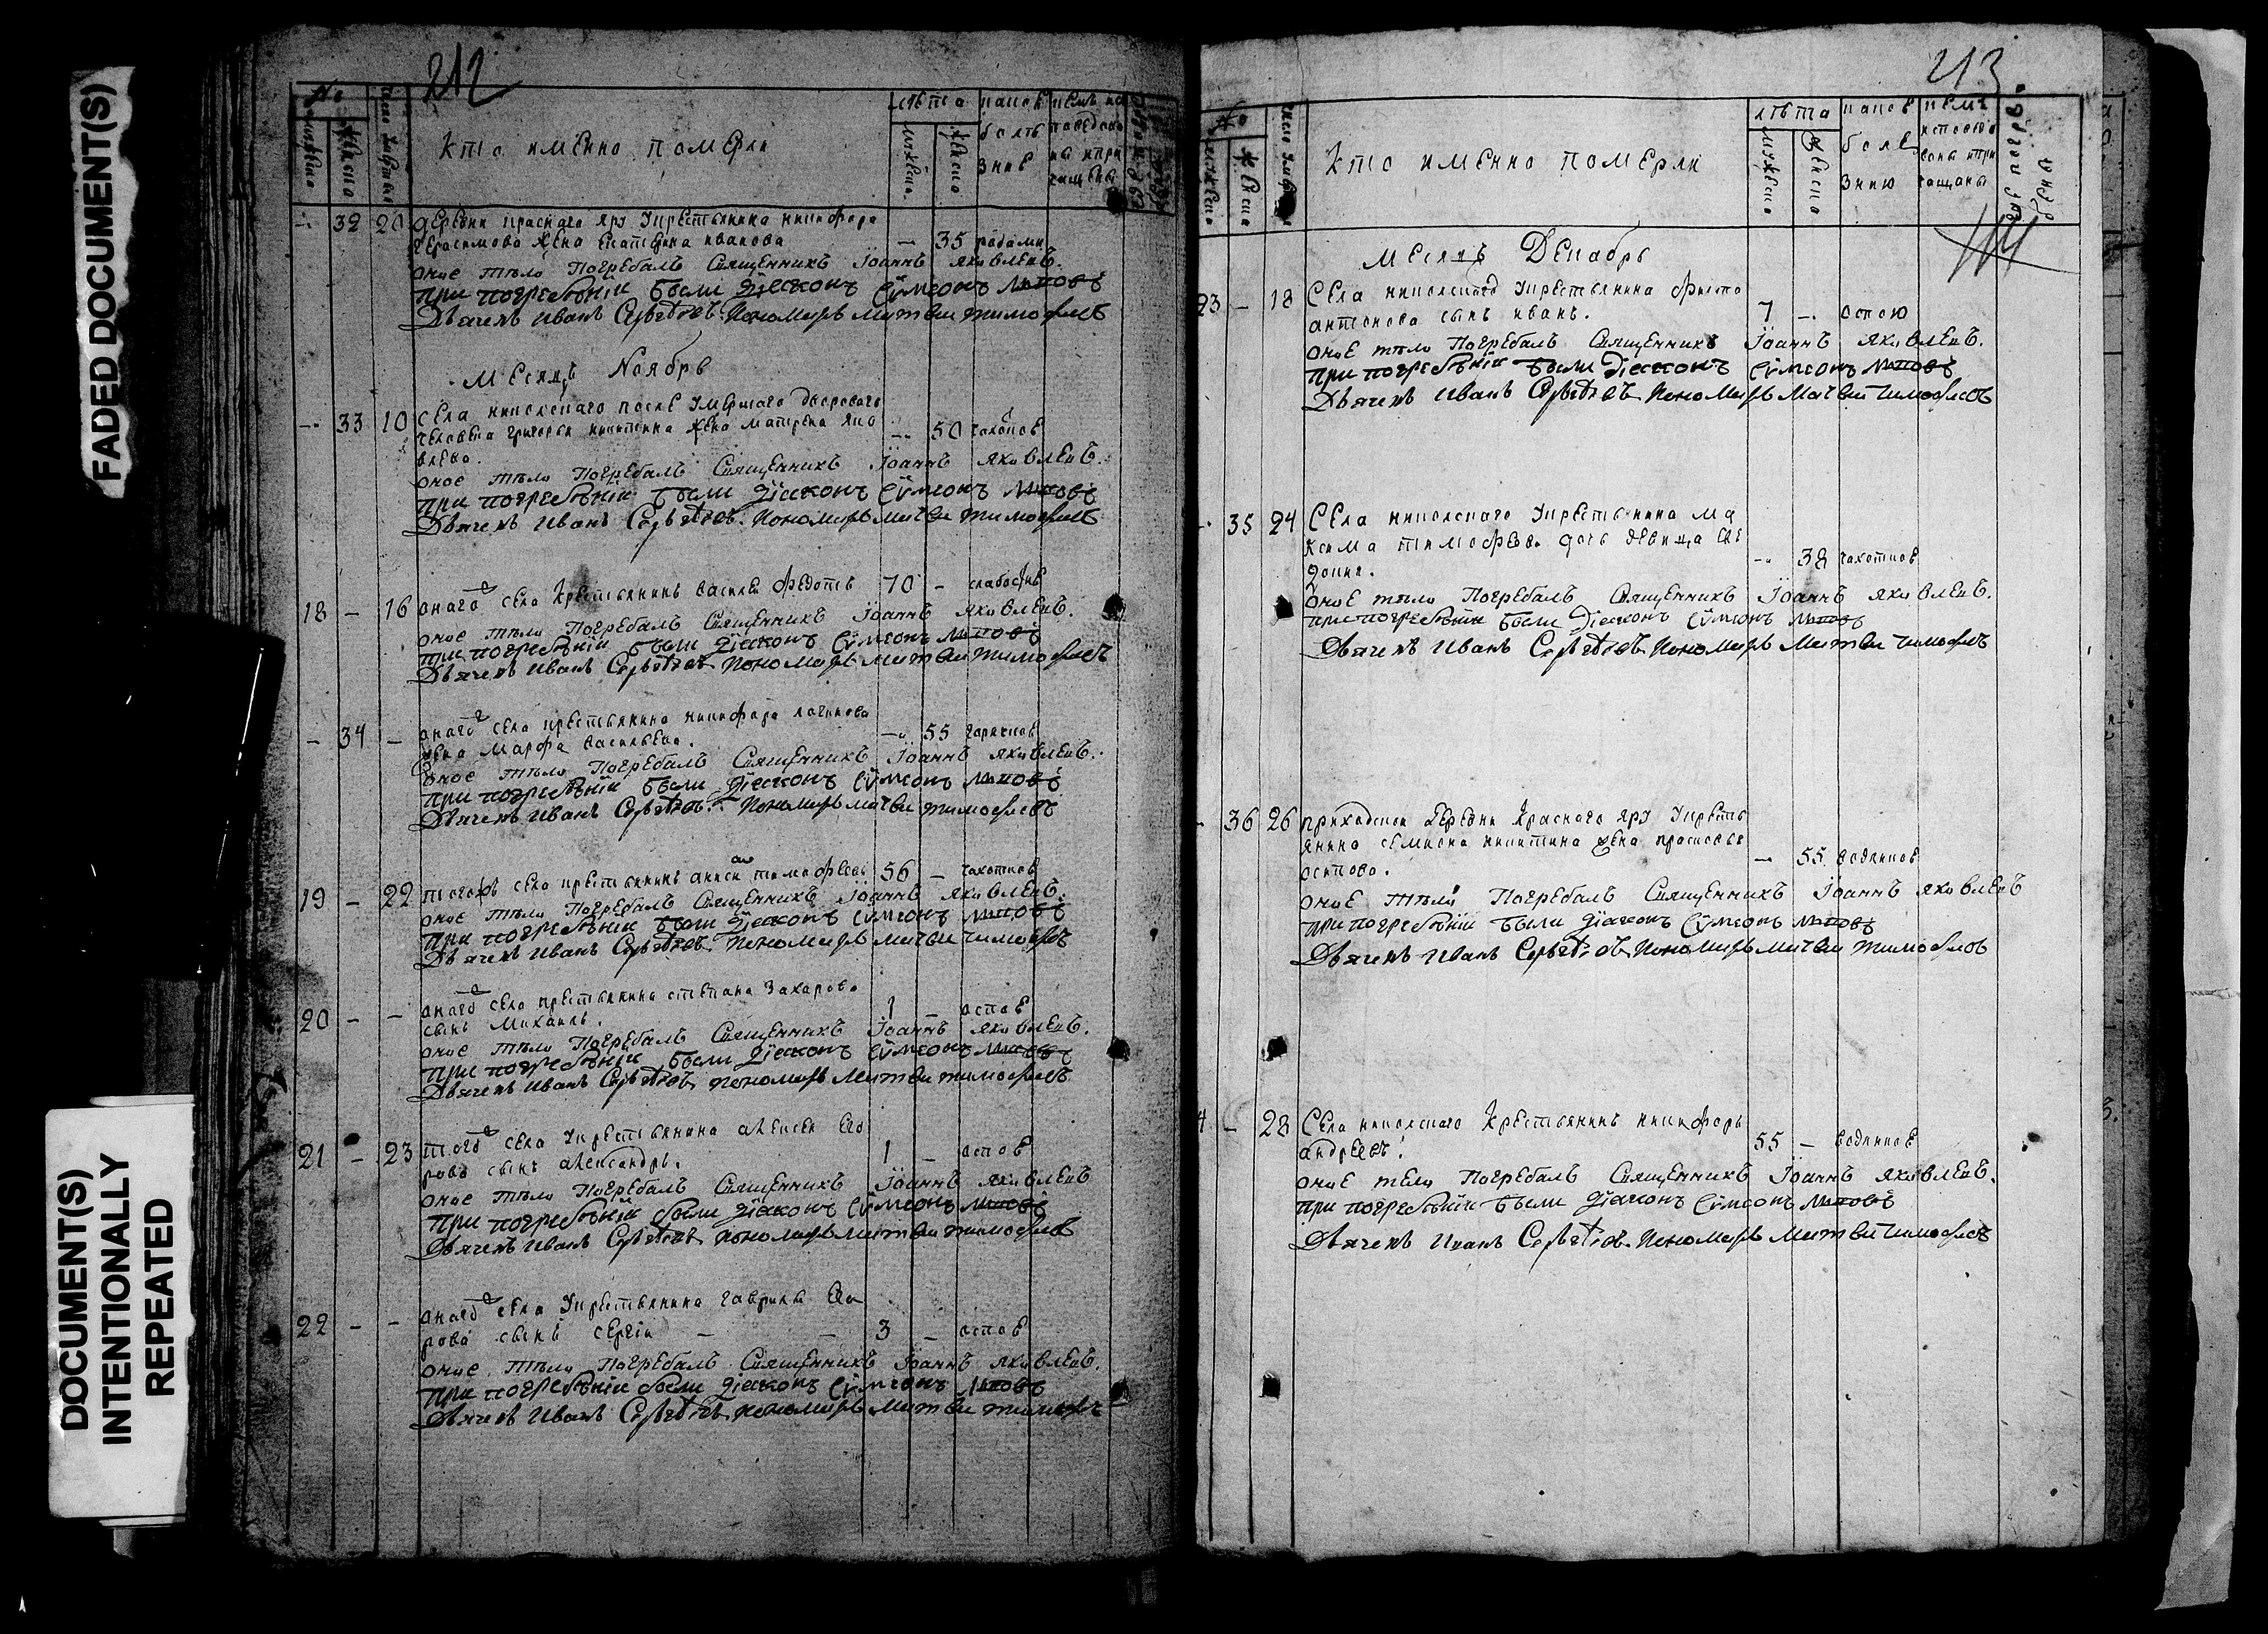 FADED DOCUMENT(S)
DOCUMENT(S)
INTENTIONALLY
REPEATED
212
№
мужеска
женска
кто имЕнно помЕрли
лѣта
мужеска
женска
какою
болѣ
знИЕ
- 32 20 дЕрЕвни краснаго яру крЕстьянина никифора
гЕрасимова жЕна Екатерина иванова - 35 родами
оноЕ тѣло погрЕбалъ СвящЕнникъ Iоаннъ яковлЕвъ.
при погребѣніи были дїаконъ сѵмеонъ
Дьячекъ Иванъ Сергѣевъ Пономарь матвеи тимофеевъ
МЕсяцъ Ноябрь
- 33 10 СЕла николскаго послЕ умЕршаго двороваго
чЕловЕка григорья никитина жЕна матрЕна яко - 50 чахоткоЕ
влЕва
оноЕ тѣло погрЕбалъ СвящЕнникъ Iоаннъ яковлЕвъ.
при погребѣніи были дїаконъ сѵмеонъ
Дьячекъ Иванъ Сергѣевъ Пономарь матвеи тимофеевъ
18 - 16 онаго сЕла крЕстьянинъ василЕи фЕдотовъ 70 - слабостью
оноЕ тѣло погрЕбалъ СвящЕнникъ Iоаннъ яковлЕвъ.
при погребѣніи были дїаконъ сѵмеонъ
Дьячекъ Иванъ Сергѣевъ Пономарь матвеи тимофеевъ
- 34 - онаго сЕла крЕстьянина никифора логинова
жЕна Марфа васильЕва. - 55 горячкоЕ
оноЕ тѣло погрЕбалъ СвящЕнникъ Iоаннъ яковлЕвъ.
при погребѣніи были дїаконъ сѵмеонъ
Дьячекъ Иванъ Сергѣевъ Пономарь матвеи тимофеевъ
19 - 22 тогожъ сЕла крЕстьянинъ тимофЕевъ 56 - чахоткоЕ
оноЕ тѣло погрЕбалъ СвящЕнникъ Iоаннъ яковлЕвъ.
при погребѣніи были дїаконъ сѵмеонъ
Дьячекъ Иванъ Сергѣевъ Пономарь матвеи тимофеевъ
20 - - онаго сЕла крЕстьянина стЕпана Захарова
сынъ Михаилъ. 1 - оспоЕ
оноЕ тѣло погрЕбалъ СвящЕнникъ Iоаннъ яковлЕвъ.
при погребѣніи были дїаконъ сѵмеонъ
Дьячекъ Иванъ Сергѣевъ Пономарь матвеи тимофеевъ
21 - 23 того сЕла крЕстьянина алЕксЕя Ево
рова сынъ алЕксандръ. 1 - оспоЕ
оноЕ тѣло погрЕбалъ СвящЕнникъ Iоаннъ яковлЕвъ
при погребѣніи были дїаконъ сѵмеонъ
Дьячекъ Иванъ Сергѣевъ Пономарь матвеи тимофеевъ
22 - - онаго сЕла крЕстьянина гаврилы
рова сынъ сЕргїи 3 - оспоЕ
оноЕ тѣло погрЕбалъ СвящЕнникъ Iоаннъ яковлЕвъ.
при погребѣніи были дїаконъ сѵмеонъ
Дьячекъ Иванъ Сергѣевъ Пономарь матвеи тимофеевъ
213
№
мужеска
женска
кто имЕнно помЕрли
лѣта
мужеска
женска
какоЕ
болЕ
знию
МЕсяцъ ДЕкабрь
23 - 18 СЕла николскаго крЕстьянина
антонова сынъ иванъ. 7 - оспою
оноЕ тѣло погрЕбалъ СвящЕнникъ Iоаннъ яковлЕвъ.
при погребѣніи были дїаконъ сѵмеонъ
Дьячекъ Иванъ Сергѣевъ Пономарь Матвеи тимофеевъ
- 35 24 СЕла николскаго крЕстьянина ма
ксима тимофЕева дочь дЕвица Ев
докия. - 38 чахоткоЕ
оноЕ тѣло погрЕбалъ СвящЕнникъ Iоаннъ яковлЕвъ.
при погребѣніи были дїаконъ сѵмеонъ
Дьячекъ Иванъ Сергѣевъ Пономарь Матвеи тимофеевъ
- 36 26 приходской дЕрЕвни Краснаго яру крЕсть
янина сЕмиона никитина жЕна прасковья
осипова. - 55 водянкоЕ
оноЕ тѣло погрЕбалъ СвящЕнникъ Iоаннъ яковлЕвъ
при погребѣніи были дїаконъ сѵмеонъ
Дьячекъ Иванъ Сергѣевъ Пономарь матвеи тимофеевъ
4 - 28 СЕла николскаго крЕстьянинъ никифоръ
андрЕевъ. 55 - водянкоЕ
оноЕ тЕло погрЕбалъ СвящЕнникъ Iоаннъ яковлЕвъ.
при погребѣніи были дїаконъ сѵмеонъ
Дьячекъ Иванъ Сергѣевъ Пономарь матвеи тимофеевъ